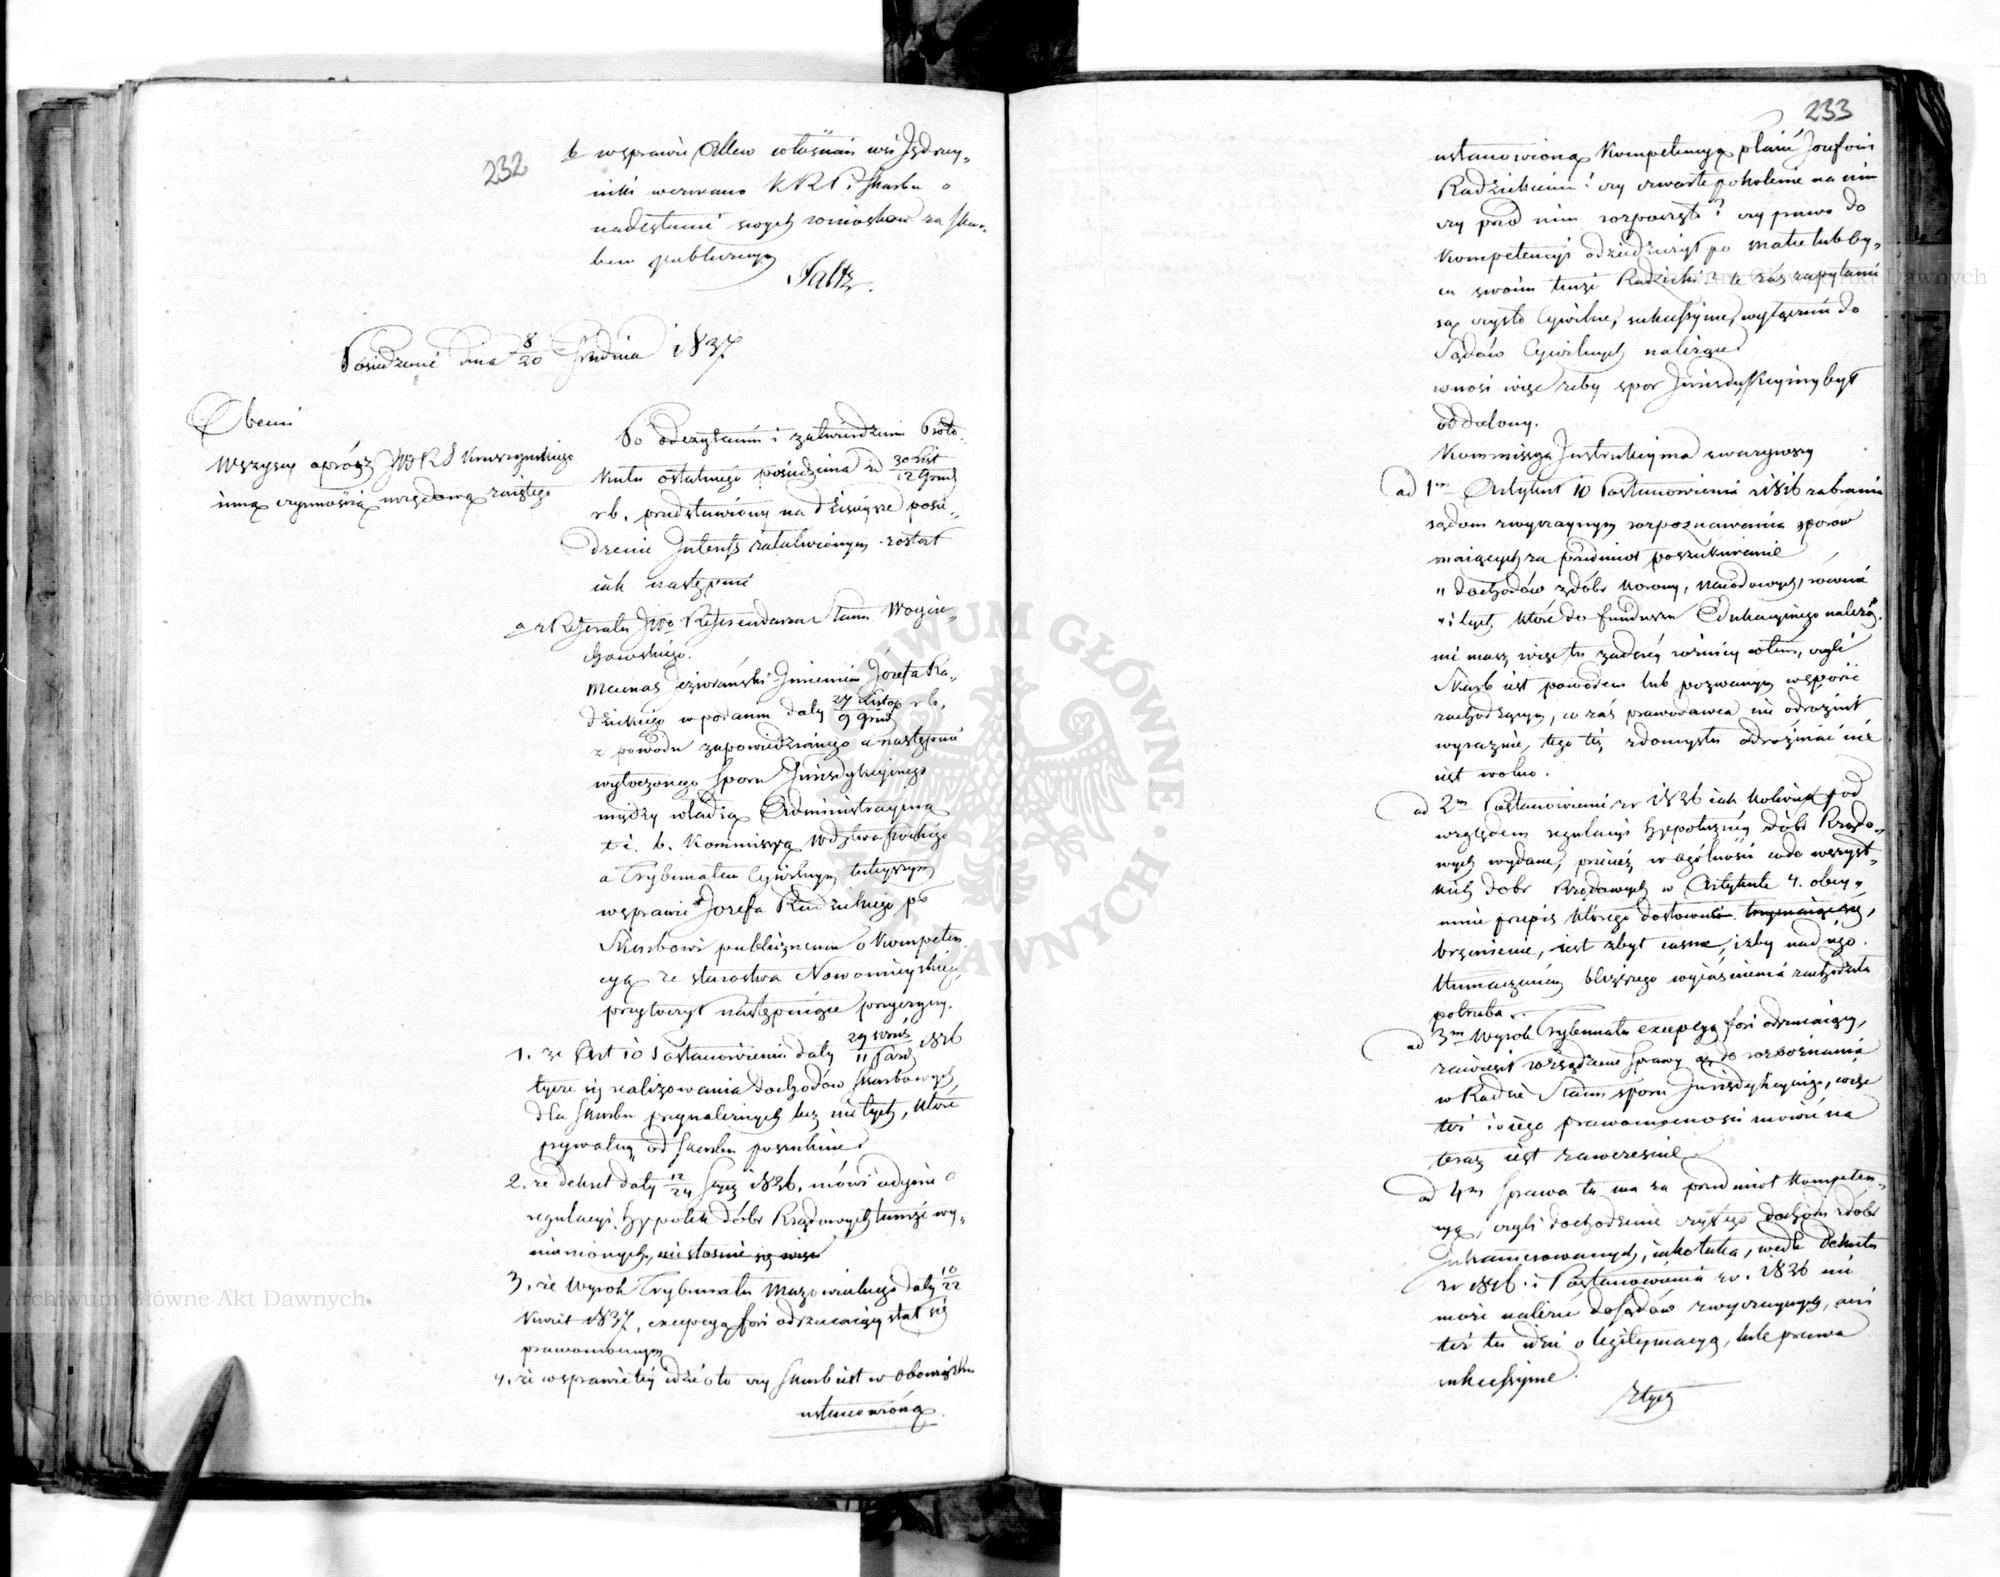 232
b w sprawie Allew włościan wsi Jędrzy„
niki wezwano KRP i Skarbu o
nadesłanie swych wniosków za Skar„
bem publicznym
Saltz.
Posiedzenie dnia 8/20 Grudnia 1837
Obecni
Wszyscy oprócz JWRS Kruszyńskiego
inną czynnością urzędową zajętego
Po odczytaniu i zatwierdzeniu Proto„
kułu ostatniego posiedzenia z d 30 List/12 Grud
r b. przedstawiony na dzisiejsze posie„
dzenie Interess załatwionym został
iak następuie
a z Referatu JWo Referendarza Stanu Woycie„
chowskiego.
Mecenas Jeziorański Imieniem Józefa Ra„
dzickiego w podaniu daty 27 Listop/9 Grud r b.
z powodu zapowiedzianego a następnie
wytoczonego sporu Jurisdykcyjnego
między władzą Administracyjną
t i. b. Kommissyą Wdztwa Płockiego
a Trybunałem Cywilnym tuteyszym
w sprawie Jozefa Radzickiego po
Skarbowi publicznemu o Kompeten
cyą ze starostwa Nowomieyskiego
przytoczył następuiące przyczyny.
1. że Art 10 Postanowienia daty 29 Wrześ/11 Paźd 1816
tycze się realizowania dochodów Skarbowych
dla Skarbu przynależnych lecz nie tych, które
prywatny od Skarbu poszukuie
2. że dekret daty 12/24 Stycz 1836. mówi iedynie o
regulacyi Hypotek dóbr Rządowych tamże wy„
mienionych, nie stosuie się więc
3. że Wyrok Trybunału Mazowieckiego daty 10/22
Kwiet 1837, excepcyą fori odrzucaiący stał się
prawomocnym
4. że w sprawie tey idzie o to czy Skarb iest w obowiązku
ustanowioną
233
ustanowioną Kompetencyą płacić Jozefowi
Radzickiemu? czy czwarte pokolenie na nim
czy przed nim rozpoczęte? czy prawo do
Kompetencyi odziedziczył po matce lub by„
ca swoim tenże Radzicki? te zaś zapytania
są czysto Cywilne, sukcessyjne, wyłącznie do
Sądów Cywilnych należące
wnosi więc żeby spor Jurisdykcyiny był
oddalony.
Kommissya Instrukcyina zważywszy
ad 1m Artykuł 10 Postanowienia z 1816 zabrania
sądom zwyczaynym rozpoznawania sporów
maiących za przedmiot poszukiwanie
„ dochodów z dóbr Korony, Narodowych, równie
„ i tych, które do funduszu Edukacyinego należą.
nie masz więc tu żadney różnicy w tem, czyli
Skarb iest powodem lub pozwanym w sporze
zachodzącym, co zaś prawodawca nie odróżnił
wyraźnie, tego też z domysłu odróżniać nie
iest wolno.
ad 2m Postanowienie z r 1836 iak kolwiek pod
względem regulacyi Hypoteczney dóbr Rządo„
wych wydane, przecież w ogólności co do wszyst„
kich dobr Rządowych w Artykule 4. obey„
muie przepis którego dosłowne trzymaiąc się,
brzmienie, iest zbyt iasne, iżby nad iego
tłumaczeniem bliższego wyiaśnienia zachodziła
potrzeba.
ad 3m Wyrok Trybunału excepcyą fori odrzucaiący,
zawiesił rozsądzenie sprawy aż do rozpoznania
w Radzie Stanu sporu Jurisdykcyinego, więc
też i o iego prawomocności mówić na
teraz iest zawcześnie
ad 4m Sprawa ta ma za przedmiot Kompeten„
cyą, czyli dochodzenie czystego dochodu z dóbr
Inkamerowanych, iako taka, wedle dekretu
z r 1816 i Postanowienia z r. 1836 nie
może należeć do sądów zwyczaynych, ani
też tu idzie o legitymacyą, lub prawa
sukcessyjne.
Z tych
Archiwum Główne Akt Dawnych
ARCHIWUM GŁÓWNE AKT DAWNYCH
Archiwum Główne Akt Dawnych